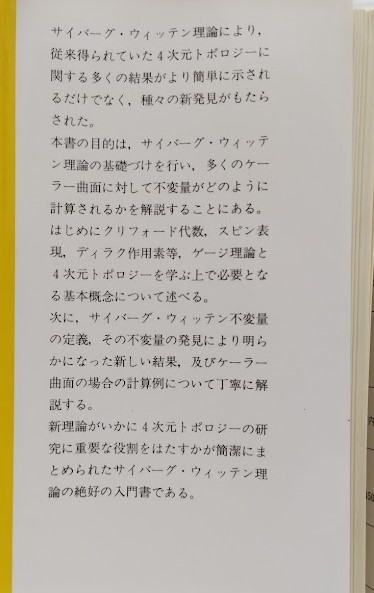 サイバーグ・ウィッテン理論により,
従来得られていた4次元トポロジーに
関する多くの結果がより簡単に示され
るだけでなく, 種々の新発見がもたら
された。
本書の目的は, サイバーグ・ウィッテ
ン理論の基礎づけを行い, 多くのケー
ラー曲面に対して不変量がどのように
計算されるかを解説することにある。
はじめにクリフォード代数, スピン表
現, ディラク作用素等, ゲージ理論と
4次元トポロジーを学ぶ上で必要とな
る基本概念について述べる。
次に, サイバーグ・ウィッテン不変量
の定義, その不変量の発見により明ら
かになった新しい結果, 及びケーラー
曲面の場合の計算例について丁寧に解
説する。
新理論がいかに4次元トポロジーの研
究に重要な役割をはたすかが簡潔にま
とめられたサイバーグ・ウィッテン理
論の絶好の入門書である。
内